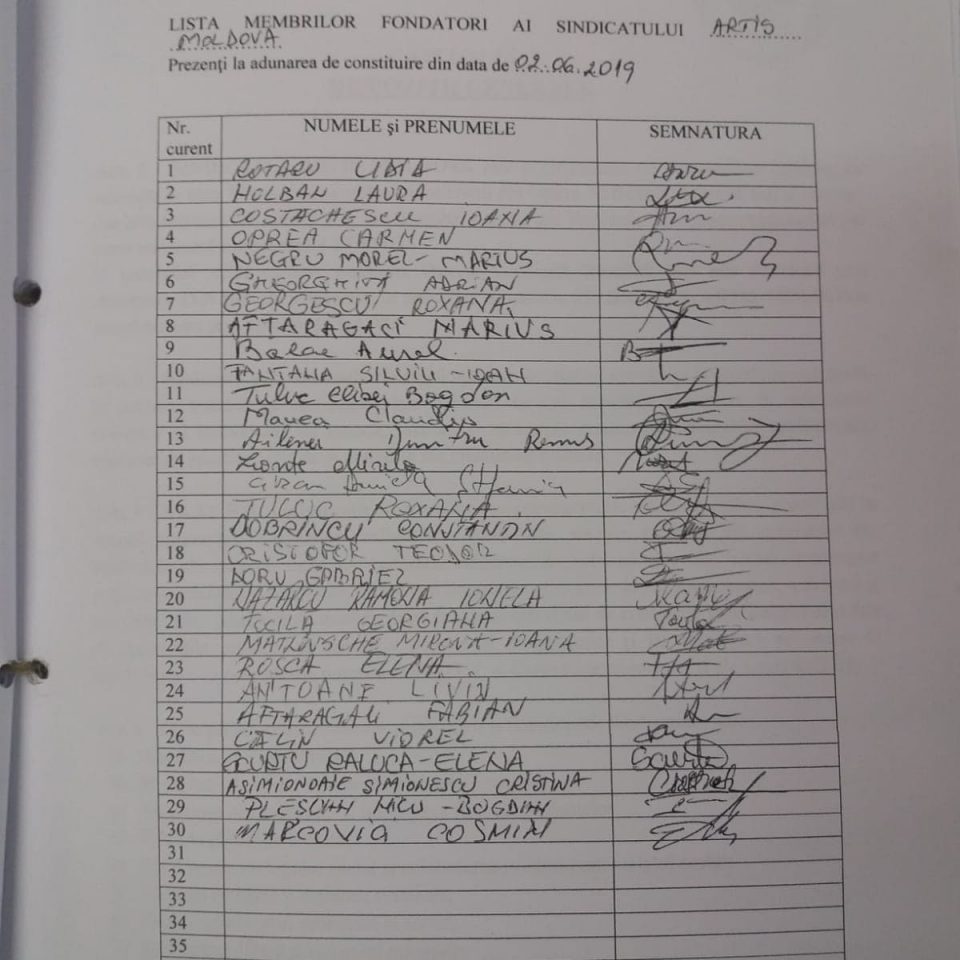 LISTA MEMBRILOR FONDATORI AI SINDICATULUI ARTIS
MOLDOVA
Prezenți la adunarea de constituire din data de 02.06.2019
Nr. curent NUMELE și PRENUMELE SEMNATURA
1 ROTARU LIDIA
2 HOLBAN LAURA
3 COSTACHESCU IOANA
4 OPREA CARMEN
5 NEGRU MOREL-MARIUS
6 GHEORGHIȚĂ ADRIAN
7 GEORGESCU ROXANA
8 AFTARAGACI MARIUS
9 Balac Aurel
10 PANTANA SILVIU-IOAN
11 Bogdan
12 Manea Claudiu
13 Ailenei Dumitru Remus
14 Mirela
15
16 TULUC ROXANA
17 DOBRINCU CONSTANTIN
18 CRISTOFOR TEODOR
19 DORU GABRIEL
20 NAZARCU RAMONA IONELA
21 TOCILA GEORGIANA
22 MIRUNA-IOANA
23 ROSCA ELENA
24 ANTOANE LIVIU
25 FABIAN
26 CALIN VIOREL
27 SCURTU RALUCA-ELENA
28 ASIMIONOAIE SIMIONESCU CRISTINA
29 NICU-BOGDAN
30 MARCOVIG COSMIN
31
32
33
34
35